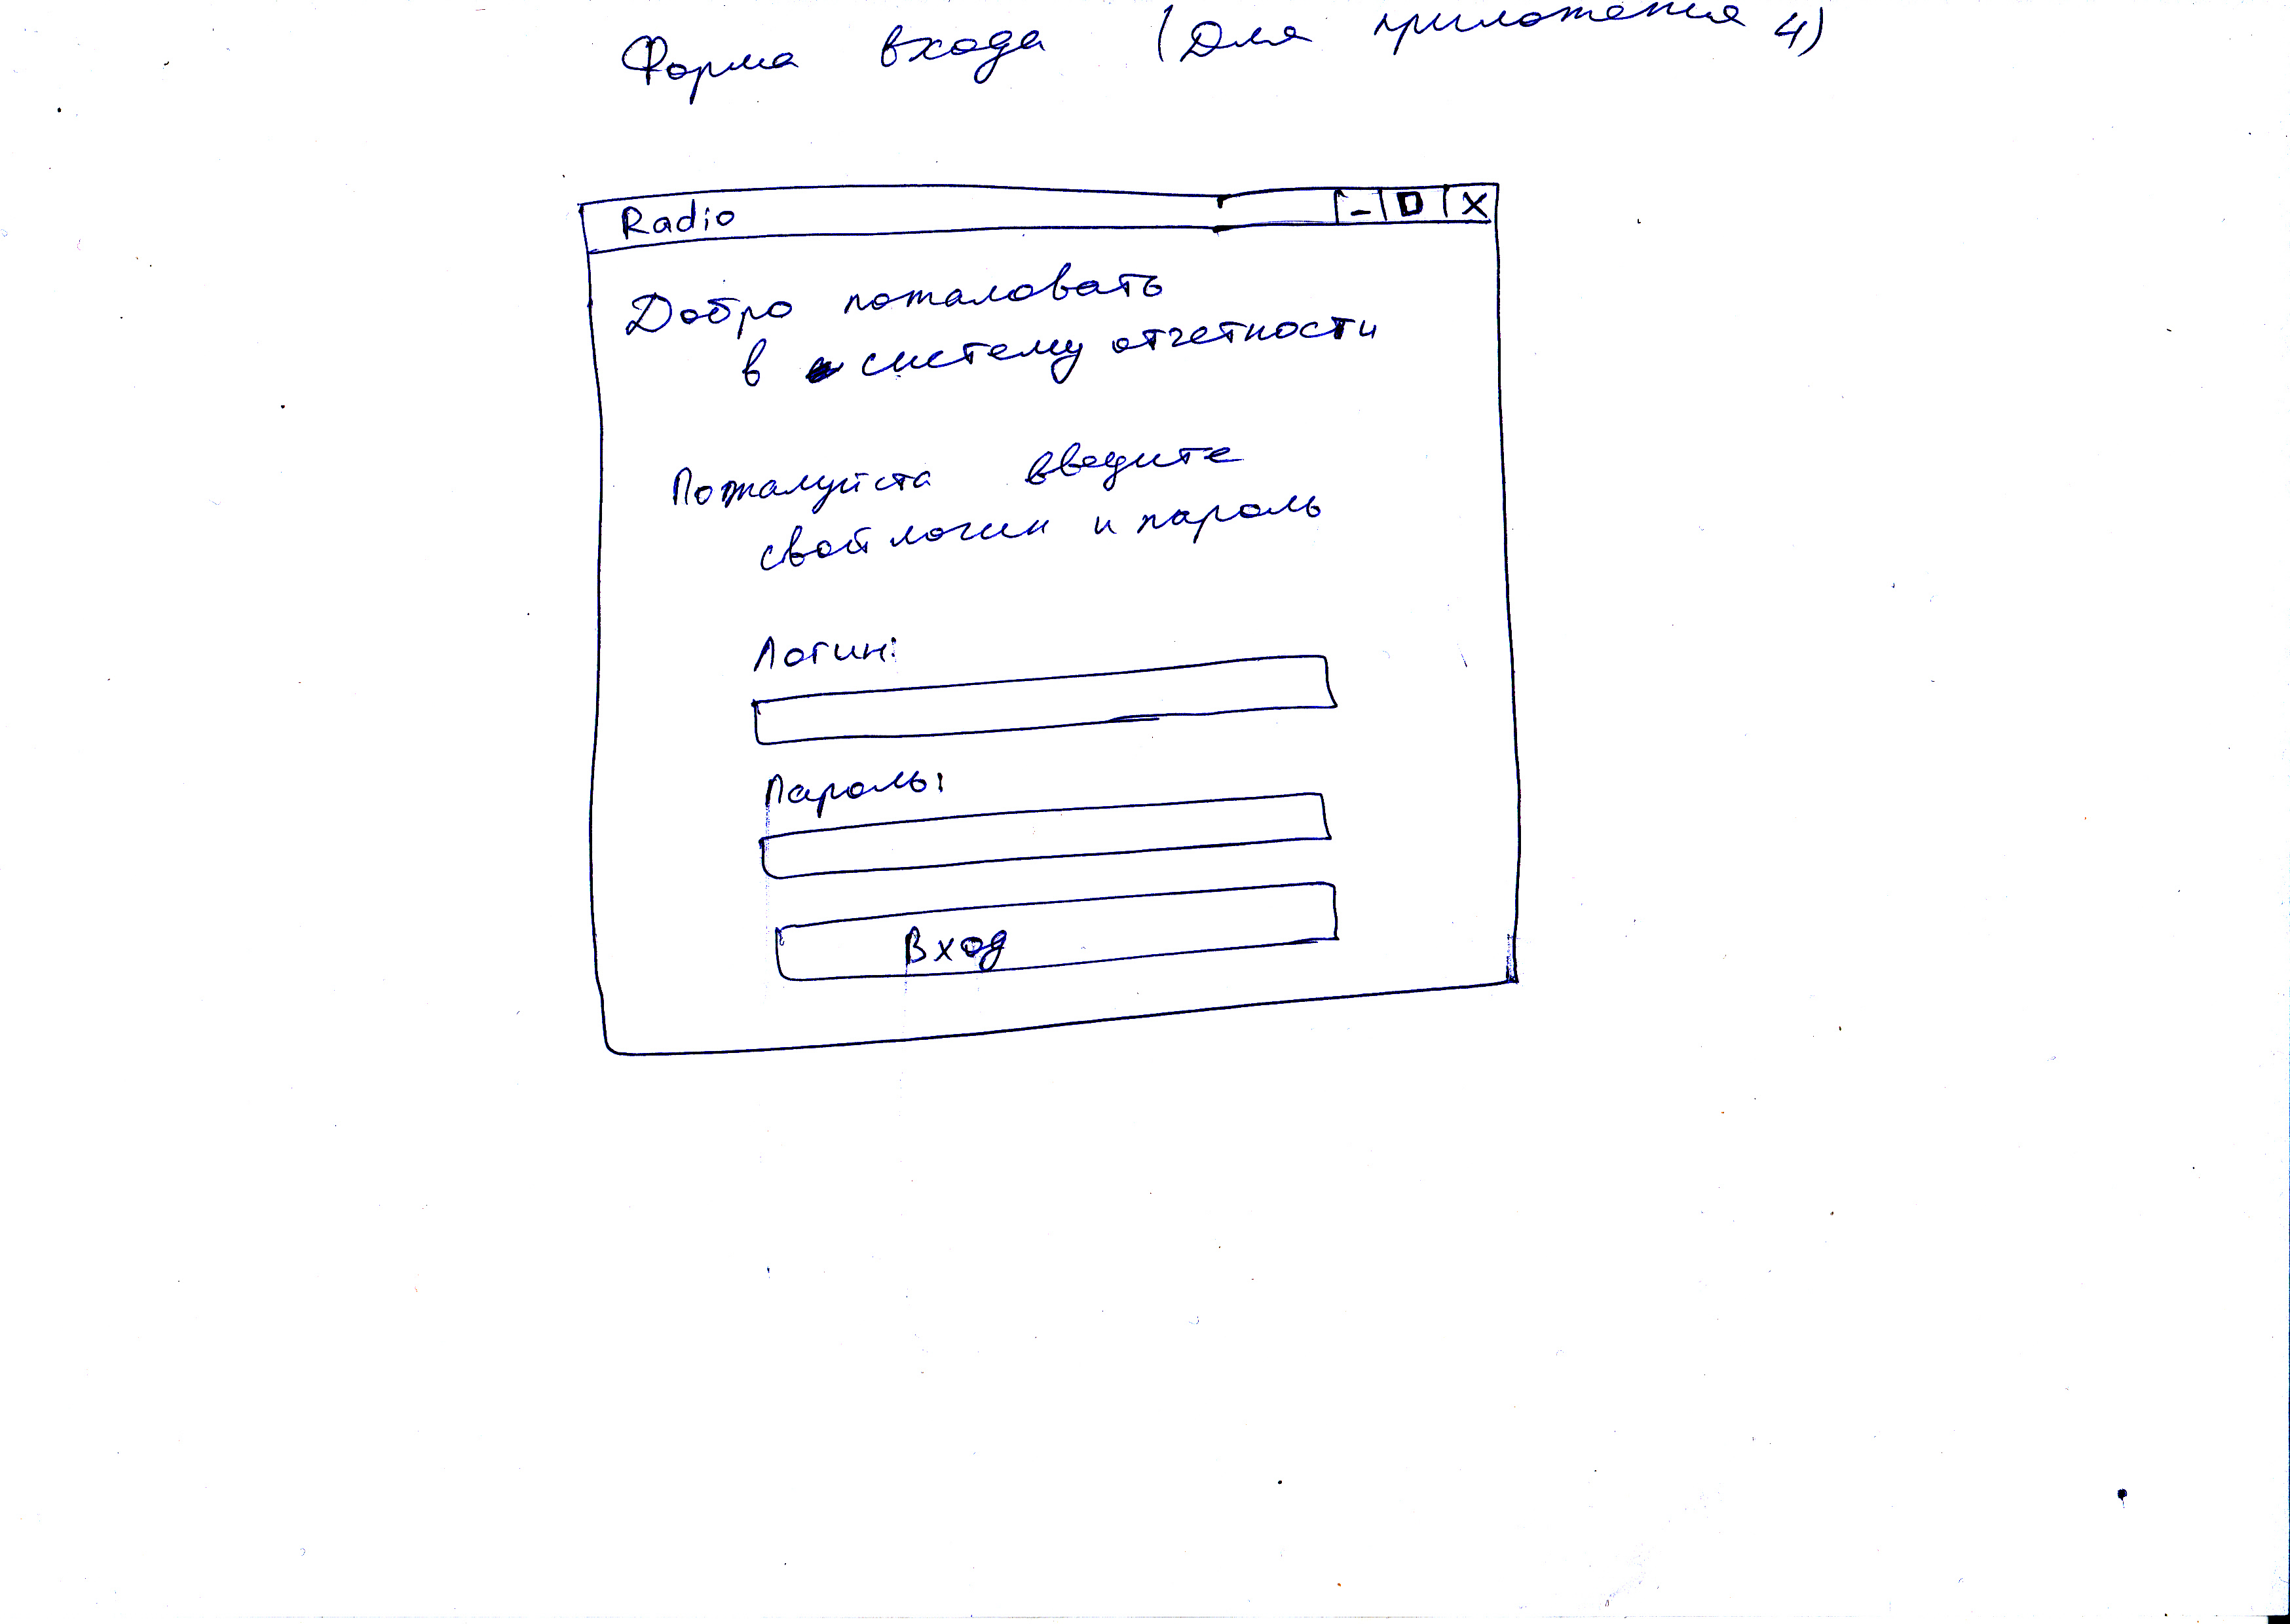 Форма входа (Для приложения 4)
Radio
Добро пожаловать
в систему отчетности
Пожалуйста введите
свой логин и пароль
Логин:
Пароль:
Вход